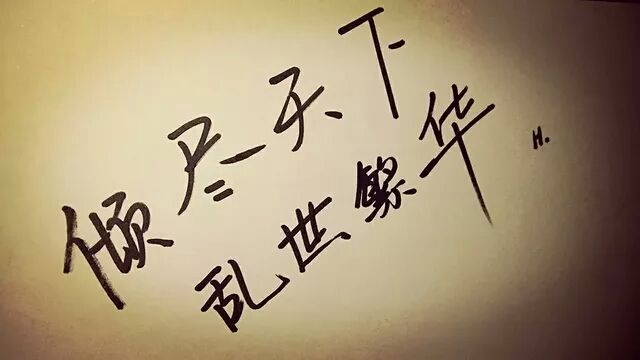 倾尽天下
乱世繁华
H.